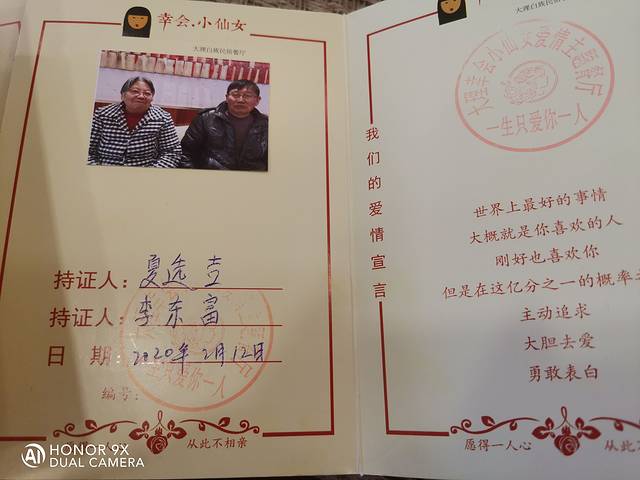 幸会.小仙女
大理白族民俗餐厅
持证人：夏远立
持证人：李东富
日 期：2020年2月12日
编号：
一生只爱你一人
从此不相亲
我们的爱情宣言
大理幸会小仙女爱情主题餐厅
一生只爱你一人
世界上最好的事情
大概就是你喜欢的人
刚好也喜欢你
但是在这亿分之一的概率
主动追求
大胆去爱
勇敢表白
愿得一人心
从此不
HONOR 9X
DUAL CAMERA